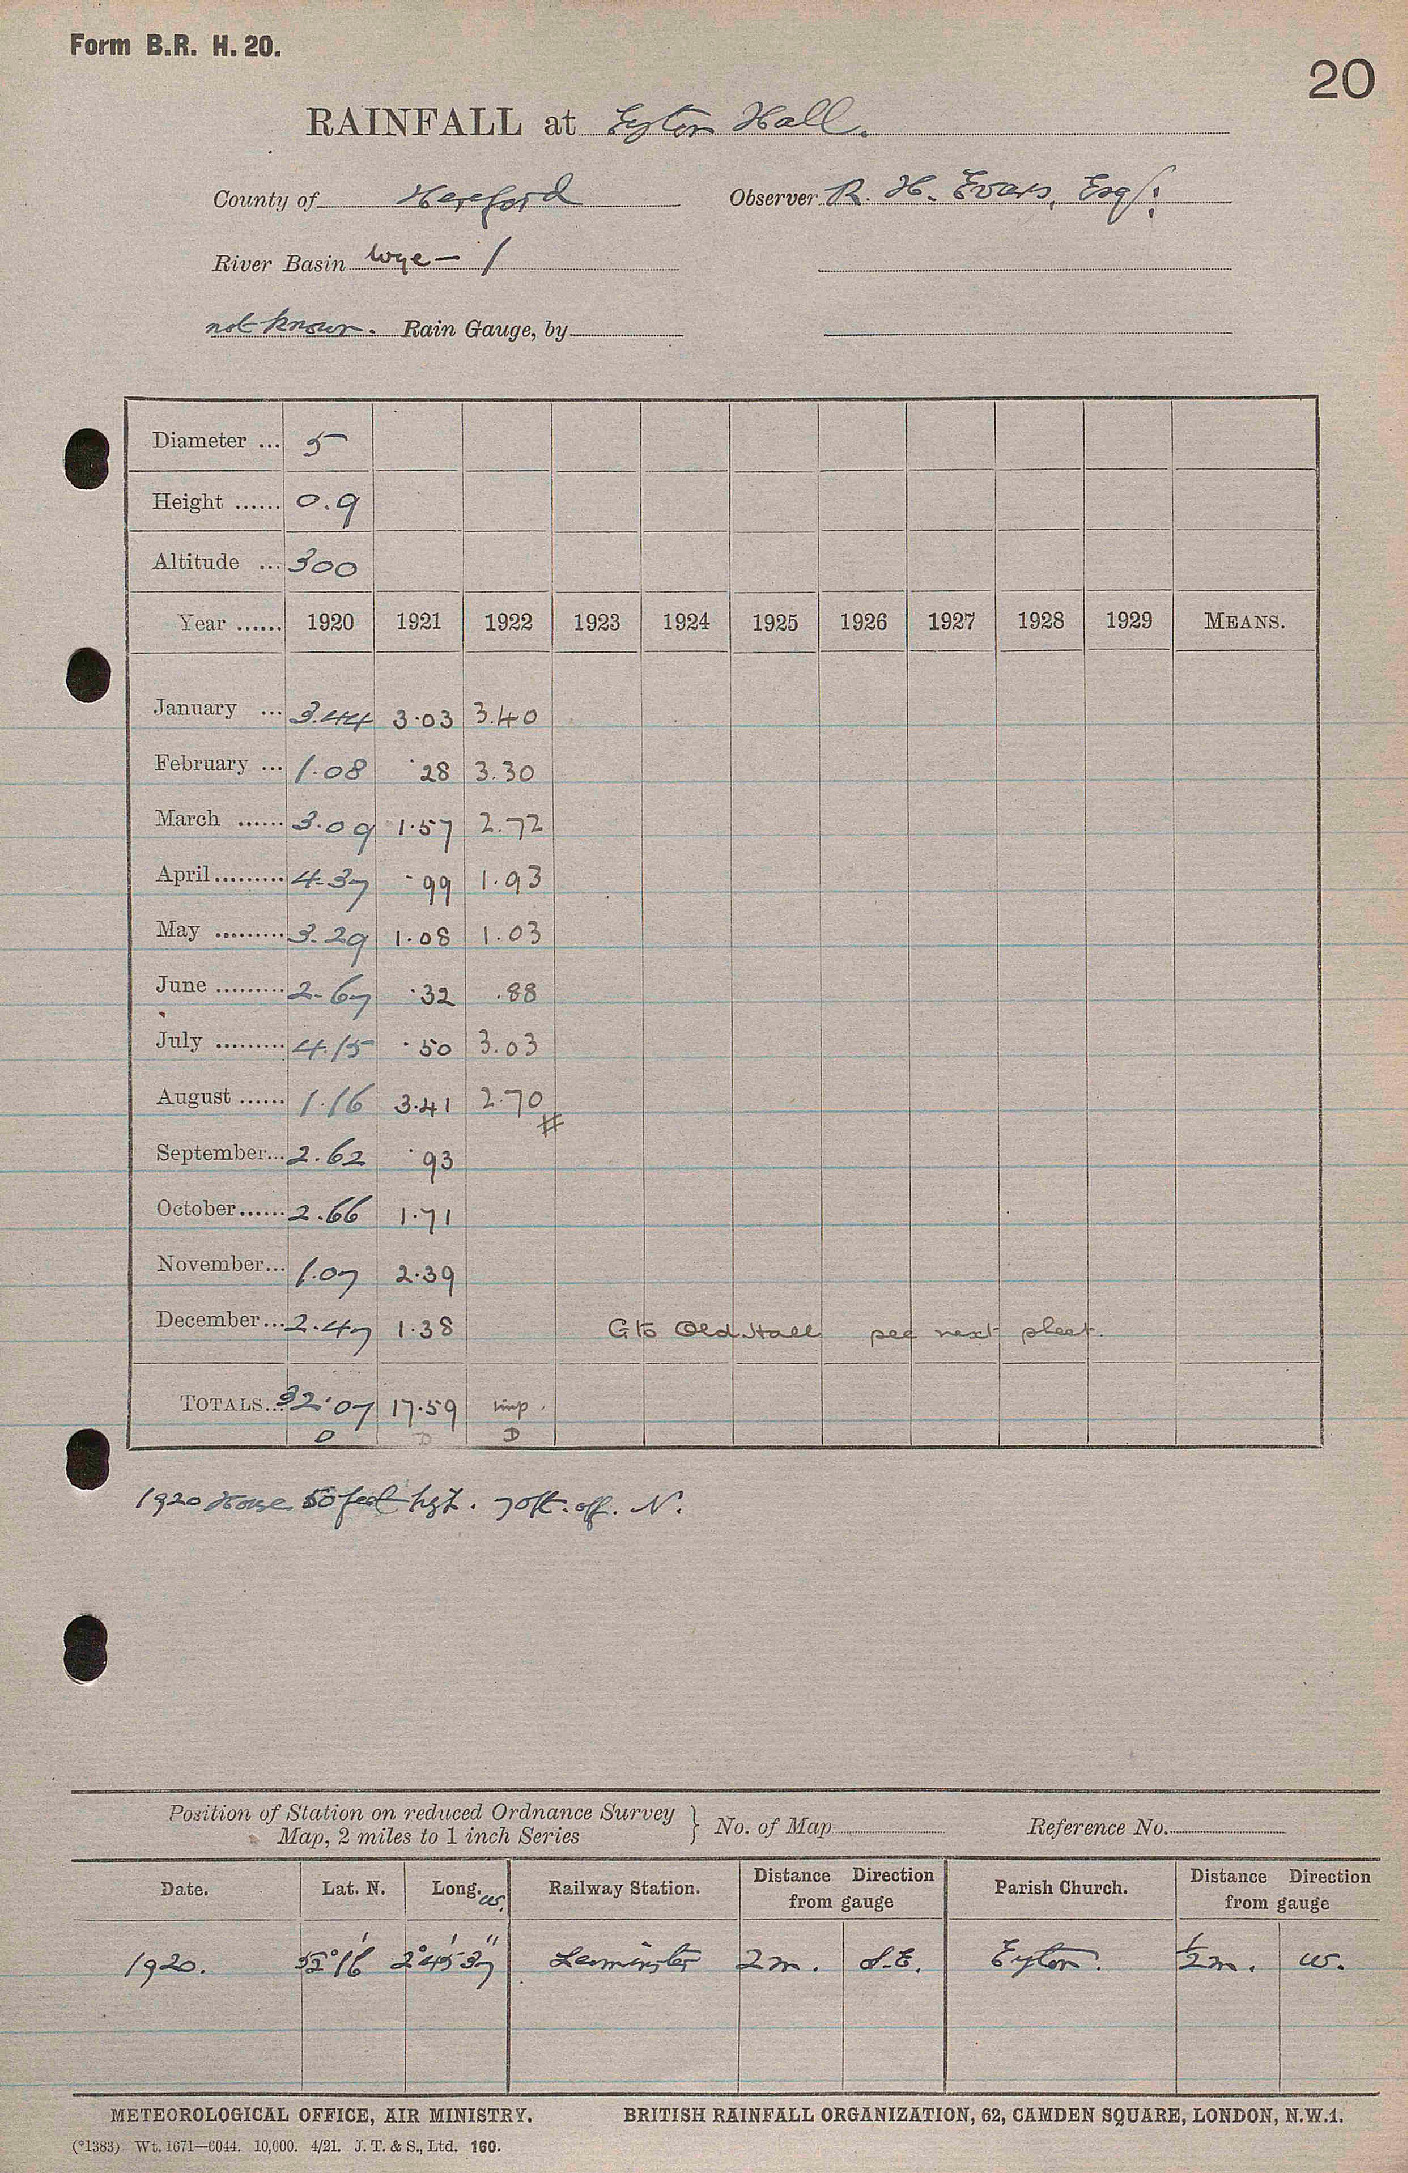 Form B.R. H. 20.
20
RAINFALL at Eyton Hall.
County of Hereford Observer R. H. Evans, Esq.
River Basin Wye – 1
not known. Rain Gauge, by
Diameter ... 5
Height ...... 0.9
Altitude ... 300
Year ...... 1920 1921 1922 1923 1924 1925 1926 1927 1928 1929 MEANS.
January ... 3.44 3.03 3.40
February ... 1.08 .28 3.30
March ...... 3.09 1.57 2.72
April ......... 4.37 .99 1.93
May ......... 3.29 1.08 1.03
June ......... 2.67 .32 .88
July ......... 4.15 .50 3.03
August ...... 1.16 3.41 2.70
#
September... 2.62 .93
October...... 2.66 1.71
November... 1.07 2.39
December... 2.47 1.38 G to Old Hall see next sheet.
TOTALS... 32.07 17.59 imp.
D D D
1920 House 50 feet hgt. 70ft. off. N.
Position of Station on reduced Ordnance Survey
Map, 2 miles to 1 inch Series } No. of Map Reference No.
Date. Lat. N. Long. W. Railway Station. Distance Direction from gauge Parish Church. Distance Direction from gauge
1920. 52° 16' 2° 45' 37" Leominster 2 m. S.E. Eyton. ½ m. W.
METEOROLOGICAL OFFICE, AIR MINISTRY. BRITISH RAINFALL ORGANIZATION, 62, CAMDEN SQUARE, LONDON, N.W.1.
(*1383) Wt. 1671—6044. 10,000. 4/21. J. T. & S., Ltd. 160.